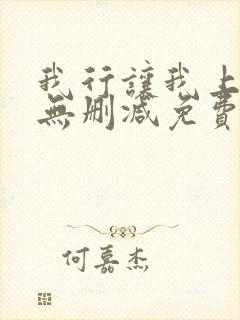 我行讓我上
無刪減免費
何嘉杰